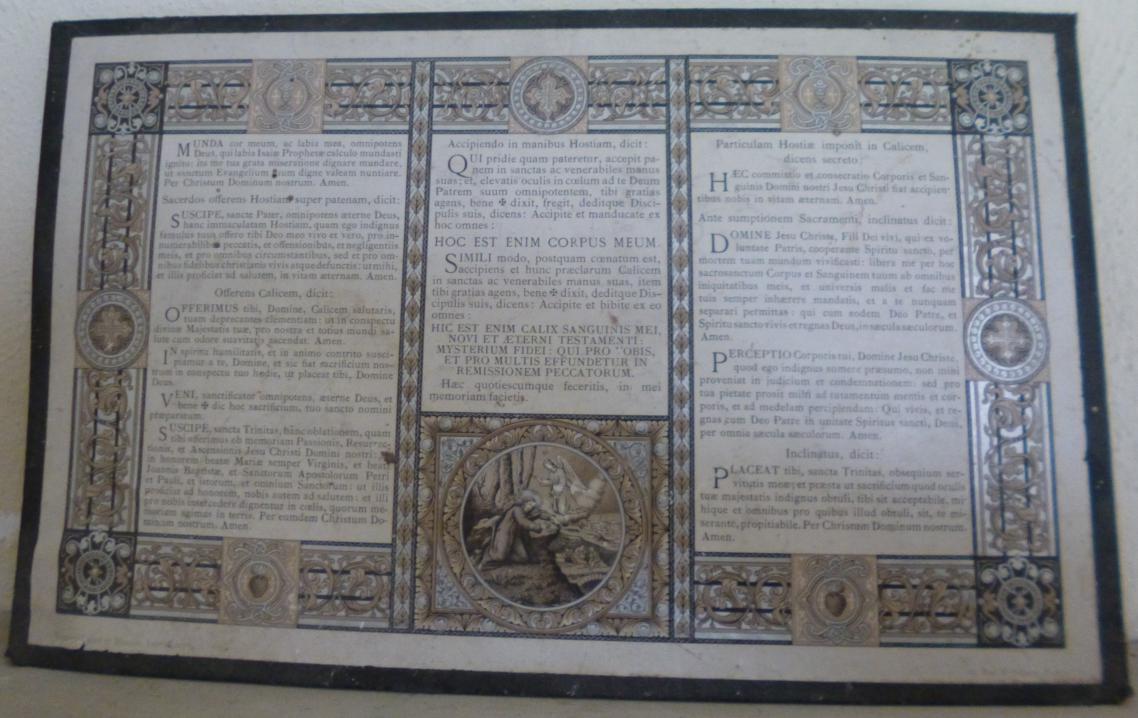 MUNDA cor meum, ac labia mea, omnipotens
Deus, qui labia Isaiæ Prophetæ calculo mundasti
ignito: ita me tua grata miseratione dignare mundare,
ut sanctum Evangelium tuum digne valeam nuntiare.
Per Christum Dominum nostrum. Amen.
Sacerdos offerens Hostiam super patenam, dicit:
SUSCIPE, sancte Pater, omnipotens æterne Deus,
hanc immaculatam Hostiam, quam ego indignus
famulus tuus offero tibi Deo meo vivo et vero, pro in-
numerabilibus peccatis, et offensionibus, et negligentiis
meis, et pro omnibus circumstantibus, sed et pro om-
nibus fidelibus christianis vivis atque defunctis: ut mihi,
et illis proficiat ad salutem, in vitam æternam. Amen.
Offerens Calicem, dicit:
OFFERIMUS tibi, Domine, Calicem salutaris,
tuam deprecantes clementiam: ut in conspectu
divinæ Majestatis tuæ, pro nostra et totius mundi sa-
lute cum odore suavitatis ascendat. Amen.
IN spiritu humilitatis, et in animo contrito susci-
piamur a te, Domine, et sic fiat sacrificium nos-
trum in conspectu tuo hodie, ut placeat tibi, Domine
Deus.
VENI, sanctificator omnipotens, æterne Deus, et
bene ✠ dic hoc sacrificium, tuo sancto nomini
præparatum.
SUSCIPE, sancta Trinitas, hanc oblationem, quam
tibi offerimus ob memoriam Passionis, Resurrec-
tionis, et Ascensionis Jesu Christi Domini nostri:
in honorem beatæ Mariæ semper Virginis, et beati
Joannis Baptistæ, et Sanctorum Apostolorum Petri
et Pauli, et istorum, et omnium Sanctorum: ut illis
proficiat ad honorem, nobis autem ad salutem: et illi
pro nobis intercedere dignentur in cœlis, quorum me-
moriam agimus in terris. Per eumdem Christum Do-
minum nostrum. Amen.
Accipiendo in manibus Hostiam, dicit:
QUI pridie quam pateretur, accepit pa-
nem in sanctas ac venerabiles manus
suas: et, elevatis oculis in cœlum ad te Deum
Patrem suum omnipotentem, tibi gratias
agens, bene ✠ dixit, fregit, deditque Disci-
pulis suis, dicens: Accipite et manducate ex
hoc omnes:
HOC EST ENIM CORPUS MEUM.
SIMILI modo, postquam cœnatum est,
accipiens et hunc præclarum Calicem
in sanctas ac venerabiles manus suas, item
tibi gratias agens, bene ✠ dixit, deditque Dis-
cipulis suis, dicens: Accipite et bibite ex eo
omnes:
HIC EST ENIM CALIX SANGUINIS MEI,
NOVI ET ÆTERNI TESTAMENTI:
MYSTERIUM FIDEI: QUI PRO VOBIS,
ET PRO MULTIS EFFUNDETUR IN
REMISSIONEM PECCATORUM.
Hæc quotiescumque feceritis, in mei
memoriam facietis.
Particulam Hostiæ imponit in Calicem,
dicens secreto:
HÆC commixtio et consecratio Corporis et San-
guinis Domini nostri Jesu Christi fiat accipien-
tibus nobis in vitam æternam. Amen.
Ante sumptionem Sacramenti, inclinatus dicit:
DOMINE Jesu Christe, Fili Dei vivi, qui ex vo-
luntate Patris, cooperante Spiritu sancto, per
mortem tuam mundum vivificasti: libera me per hoc
sacrosanctum Corpus et Sanguinem tuum ab omnibus
iniquitatibus meis, et universis malis et fac me
tuis semper inhærere mandatis, et a te nunquam
separari permittas: qui cum eodem Deo Patre, et
Spiritu sancto vivis et regnas Deus, in sæcula sæculorum.
Amen.
PERCEPTIO Corporis tui, Domine Jesu Christe,
quod ego indignus sumere præsumo, non mihi
proveniat in judicium et condemnationem: sed pro
tua pietate prosit mihi ad tutamentum mentis et cor-
poris, et ad medelam percipiendam: Qui vivis, et re-
gnas cum Deo Patre in unitate Spiritus sancti, Deus,
per omnia sæcula sæculorum. Amen.
Inclinatus, dicit:
PLACEAT tibi, sancta Trinitas, obsequium ser-
vitutis meæ; et præsta ut sacrificium quod oculis
tuæ majestatis indignus obtuli, tibi sit acceptabile, mi-
hique et omnibus pro quibus illud obtuli, sit, te mi-
serante, propitiabile. Per Christum Dominum nostrum.
Amen.